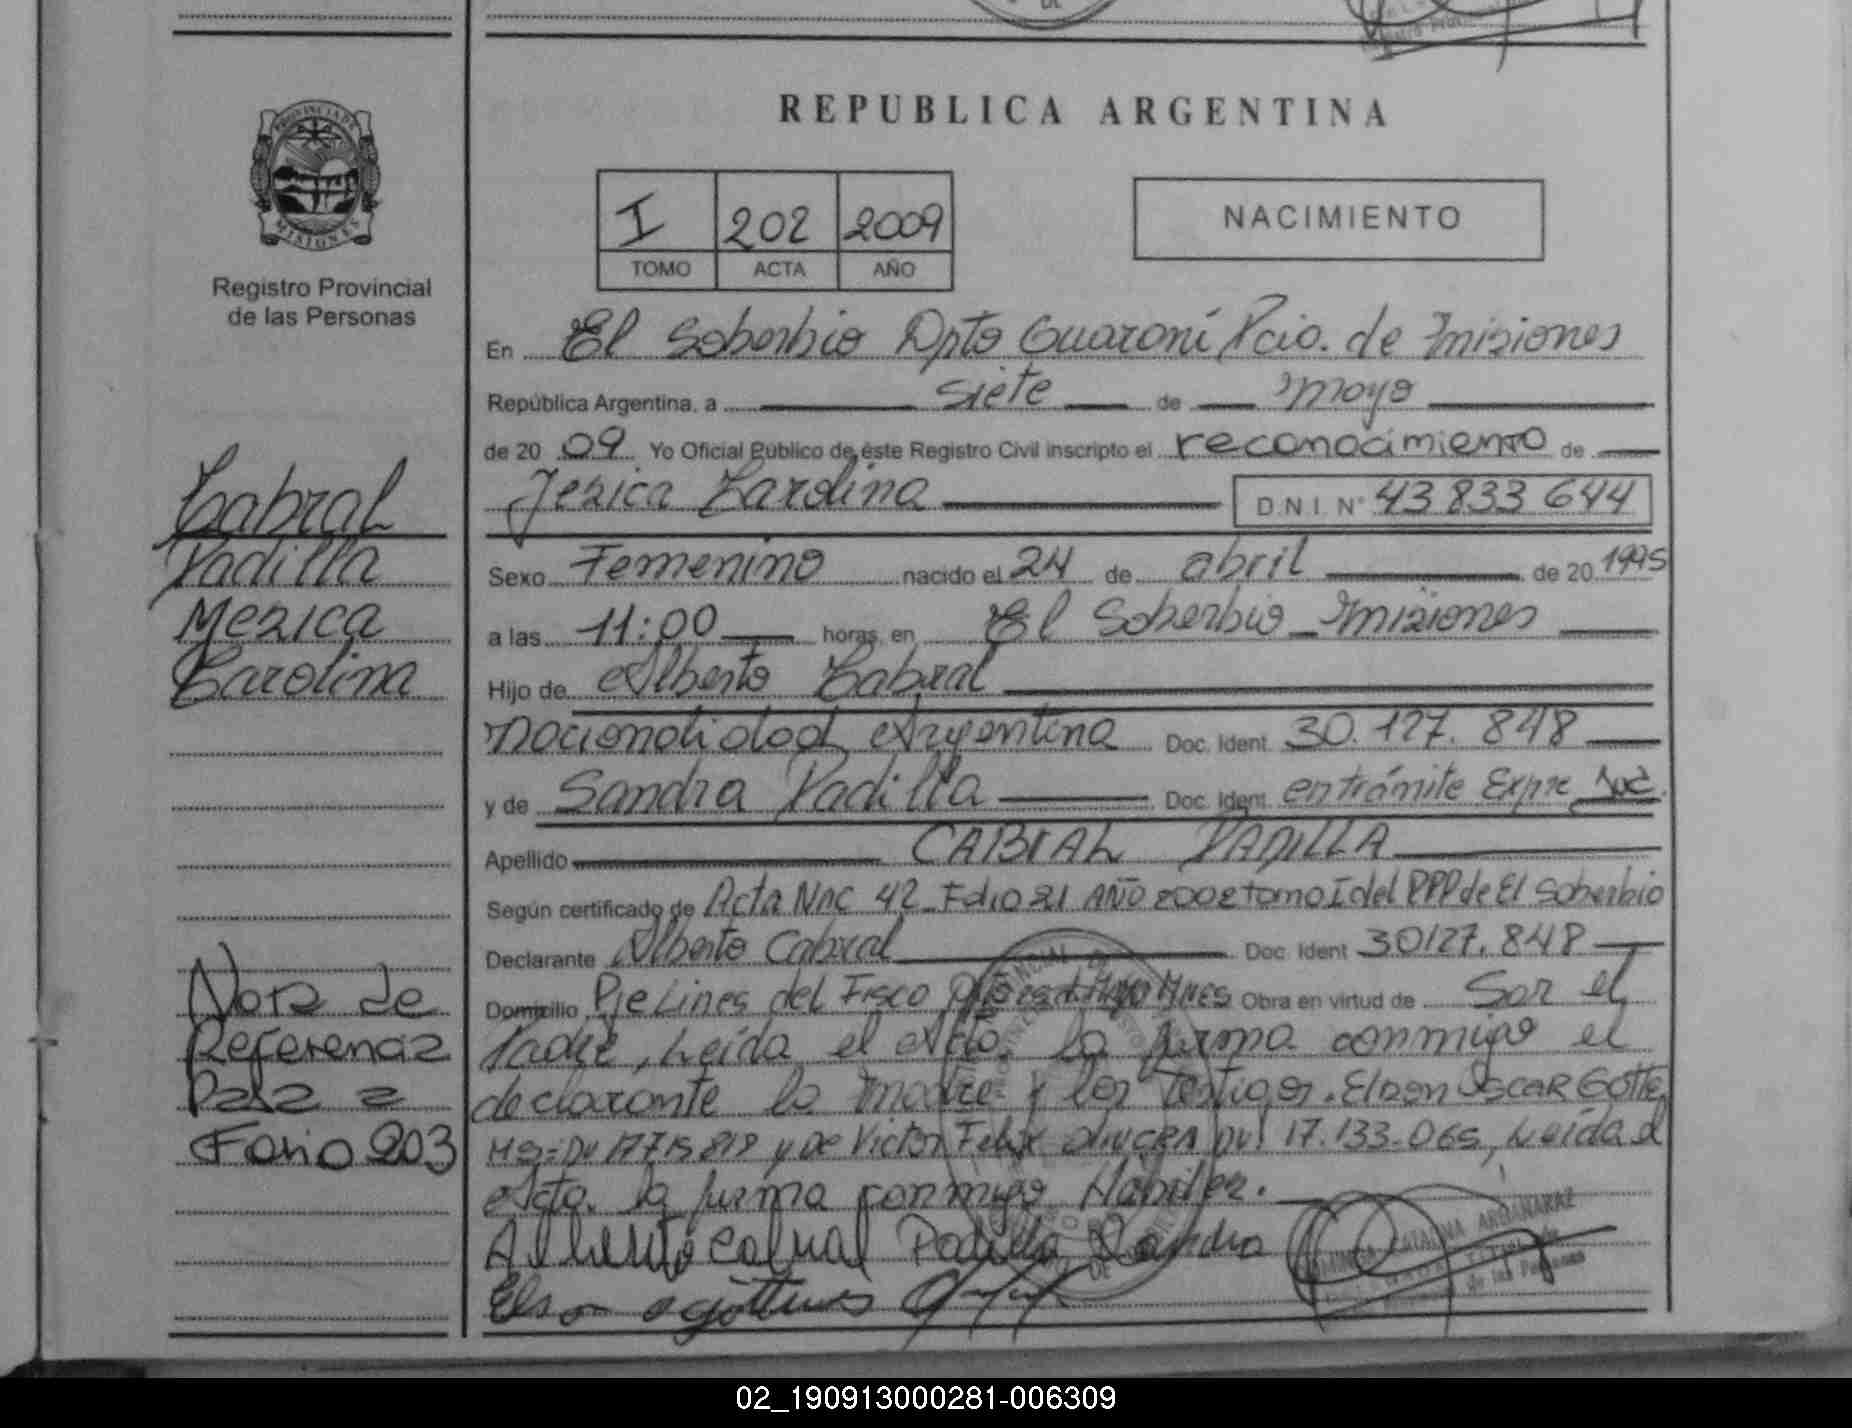 REPUBLICA ARGENTINA
PROVINCIA DE
MISIONES
Registro Provincial
de las Personas
I 202 2009
TOMO ACTA AÑO
NACIMIENTO
En El Soberbio Dpto Guaraní Pcia. de Misiones
República Argentina, a siete de mayo
de 20 09 Yo Oficial Público de éste Registro Civil inscripto el reconocimiento de
Jesica Carolina D.N.I. N° 43 833 644
Sexo Femenino nacido el 24 de abril de 20 1995
a las 11:00 horas, en El Soberbio Misiones
Hijo de Alberto Cabral
nacionalidad Argentina Doc. Ident. 30.127.848
y de Sandra Padilla Doc. Ident. en trámite Expte
Apellido CABRAL PADILLA
Según certificado de Acta Nac 42 Folio 21 AÑO 2002 tomo I del RPP de El Soberbio
Declarante Alberto Cabral Doc. Ident 30127.848
Domicilio Pje Lines del Fisco Obra en virtud de Ser el
Padre, Leída el Acta, la firma conmigo el
declarante la madre y los Testigos. Elson OSCAR Gotte
y de Victor Felix DNI 17.133.065, Leída el
Acta. la firma conmigo
Alberto cabral Padilla Sandra
CATALINA
de las Personas
Cabral
Padilla
Mesica
Carolina
Nota de
Referencia
Pasa a
Folio 203
02_190913000281-006309